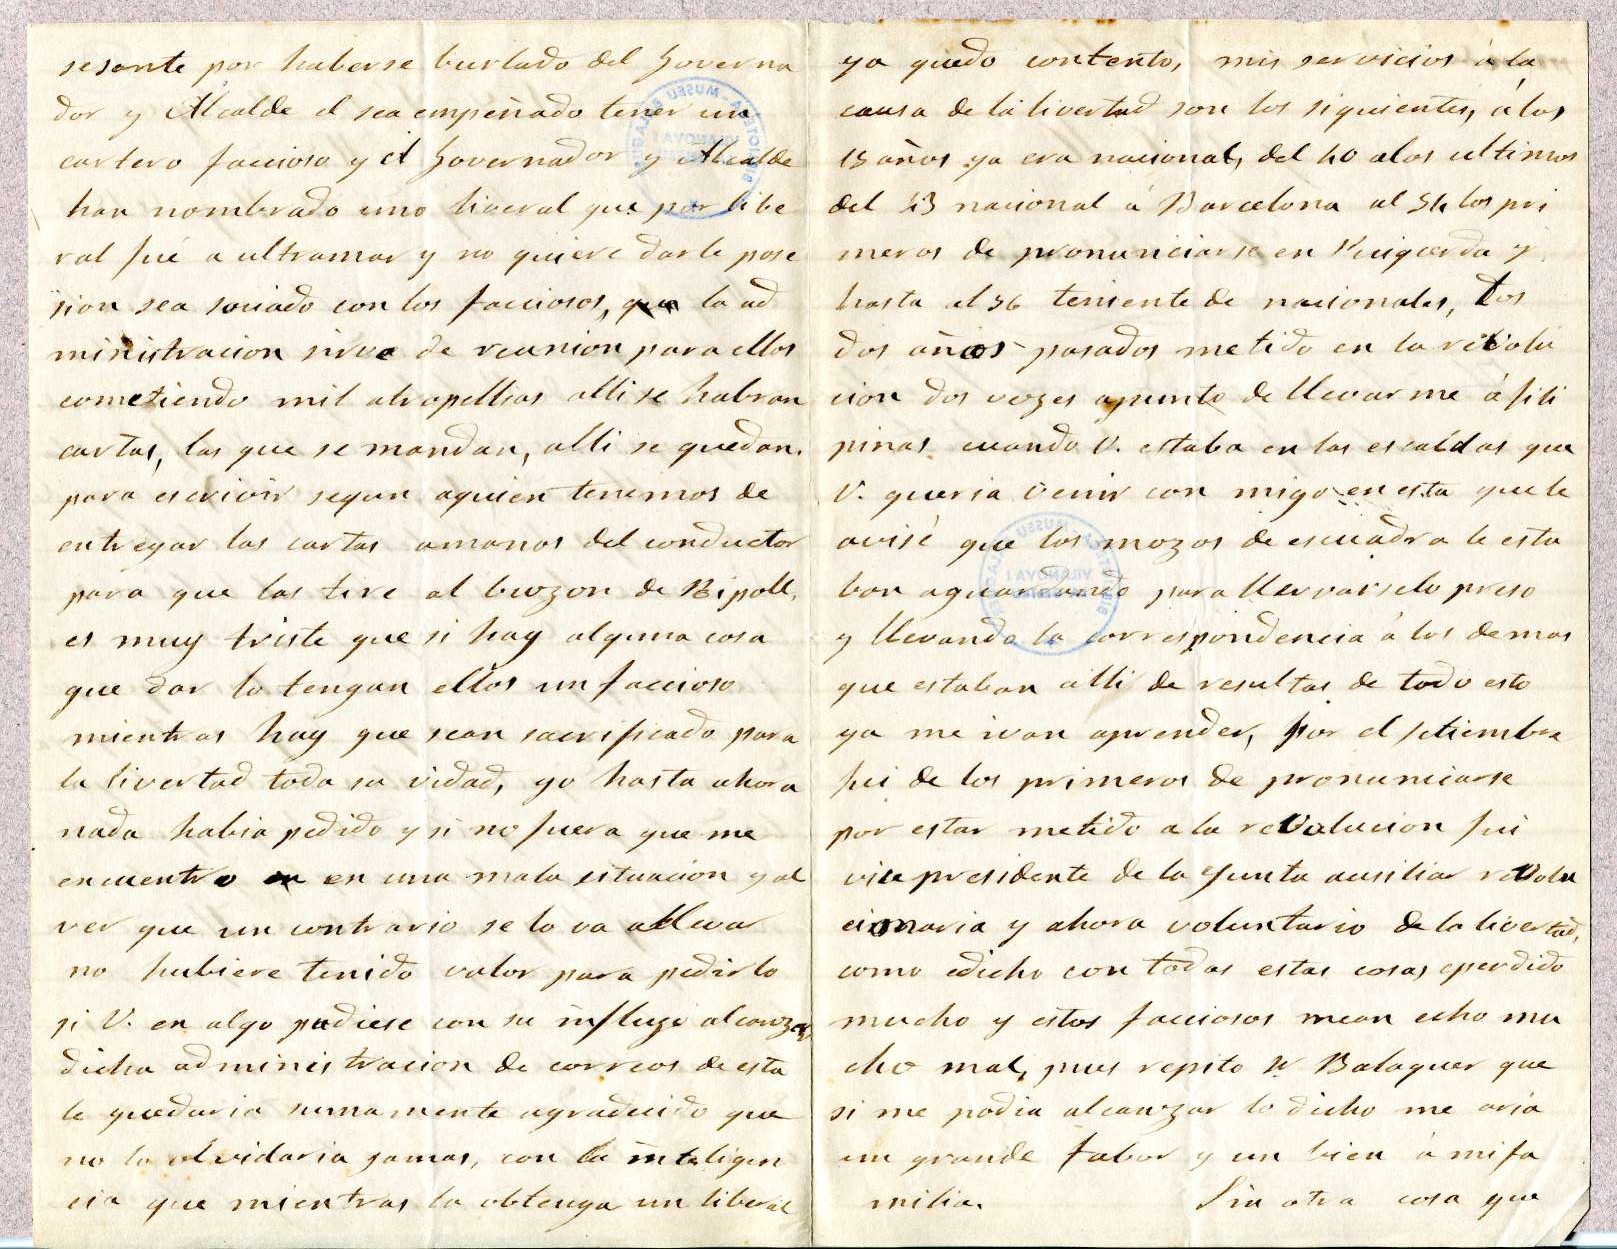 sesante por haberse burlado del Governa
dor y Alcalde el sea empeñado tener un
cartero faccioso y el Governador y Alcalde
han nombrado uno liveral que por libe
ral fué a ultramar y no quiere darle pose
sion sea soniado con los facciosos, que la ad
ministracion sirve de reunion para ellos
cometiendo mil atropellias alli se habran
cartas, las que se mandan, alli se quedan.
para escrivir segun aquien tenemos de
entregar las cartas amanos del conductor
para que las tire al buzon de Ripoll,
es muy triste que si hay alguna cosa
que dar lo tengan ellos un faccioso
mientras hay que sean sacrificado para
la livertad toda sa vidad, yo hasta ahora
nada habia pedido y si no fuera que me
encuentro en una mala situacion y al
ver que un contrario se lo va allevar
no hubiere tenido valor para pedirlo
si V. en algo pudiese con su influzo alcanzar
dicha administracion de correos de esta
le quedaria sumamente agradecido que
no lo olvidaria jamas, con la inteligen
cia que mientras la obtenga un liberal
ya quedo contento, mis servicios á la
causa de la livertad son los siguientes, á los
15 años ya era nacional, del 40 alos ultimos
del 43 nacional á Barcelona al 54 los pri
meros de pronunciarse en Puigcerda y
hasta al 56 teniente de nacionales, Los
dos años pasados metido en la revolu
cion dos vezes apunto de llevarme á fili
pinas cuando V. estaba en las escaldas que
V. queria venir con migo en esta que le
avisé que los mozos de escuadra le esta
ban aguardando para llervarselo preso
y llevando la correspondencia á los demas
que estaban alli de resultas de todo esto
ya me ivan aprender, por el setiembre
fui de los primeros de pronunciarse
por estar metido a la revolucion fui
vice presidente de la Junta ausiliar revolu
cionaria y ahora voluntario de la livertad,
como edicho con todas estas cosas eperdido
mucho y estos facciosos mean echo mu
cho mal, pues repito Sr Balaguer que
si me podia alcanzar lo dicho me aria
un grande fabor y un bien á mi fa
milia. Sin otra cosa que